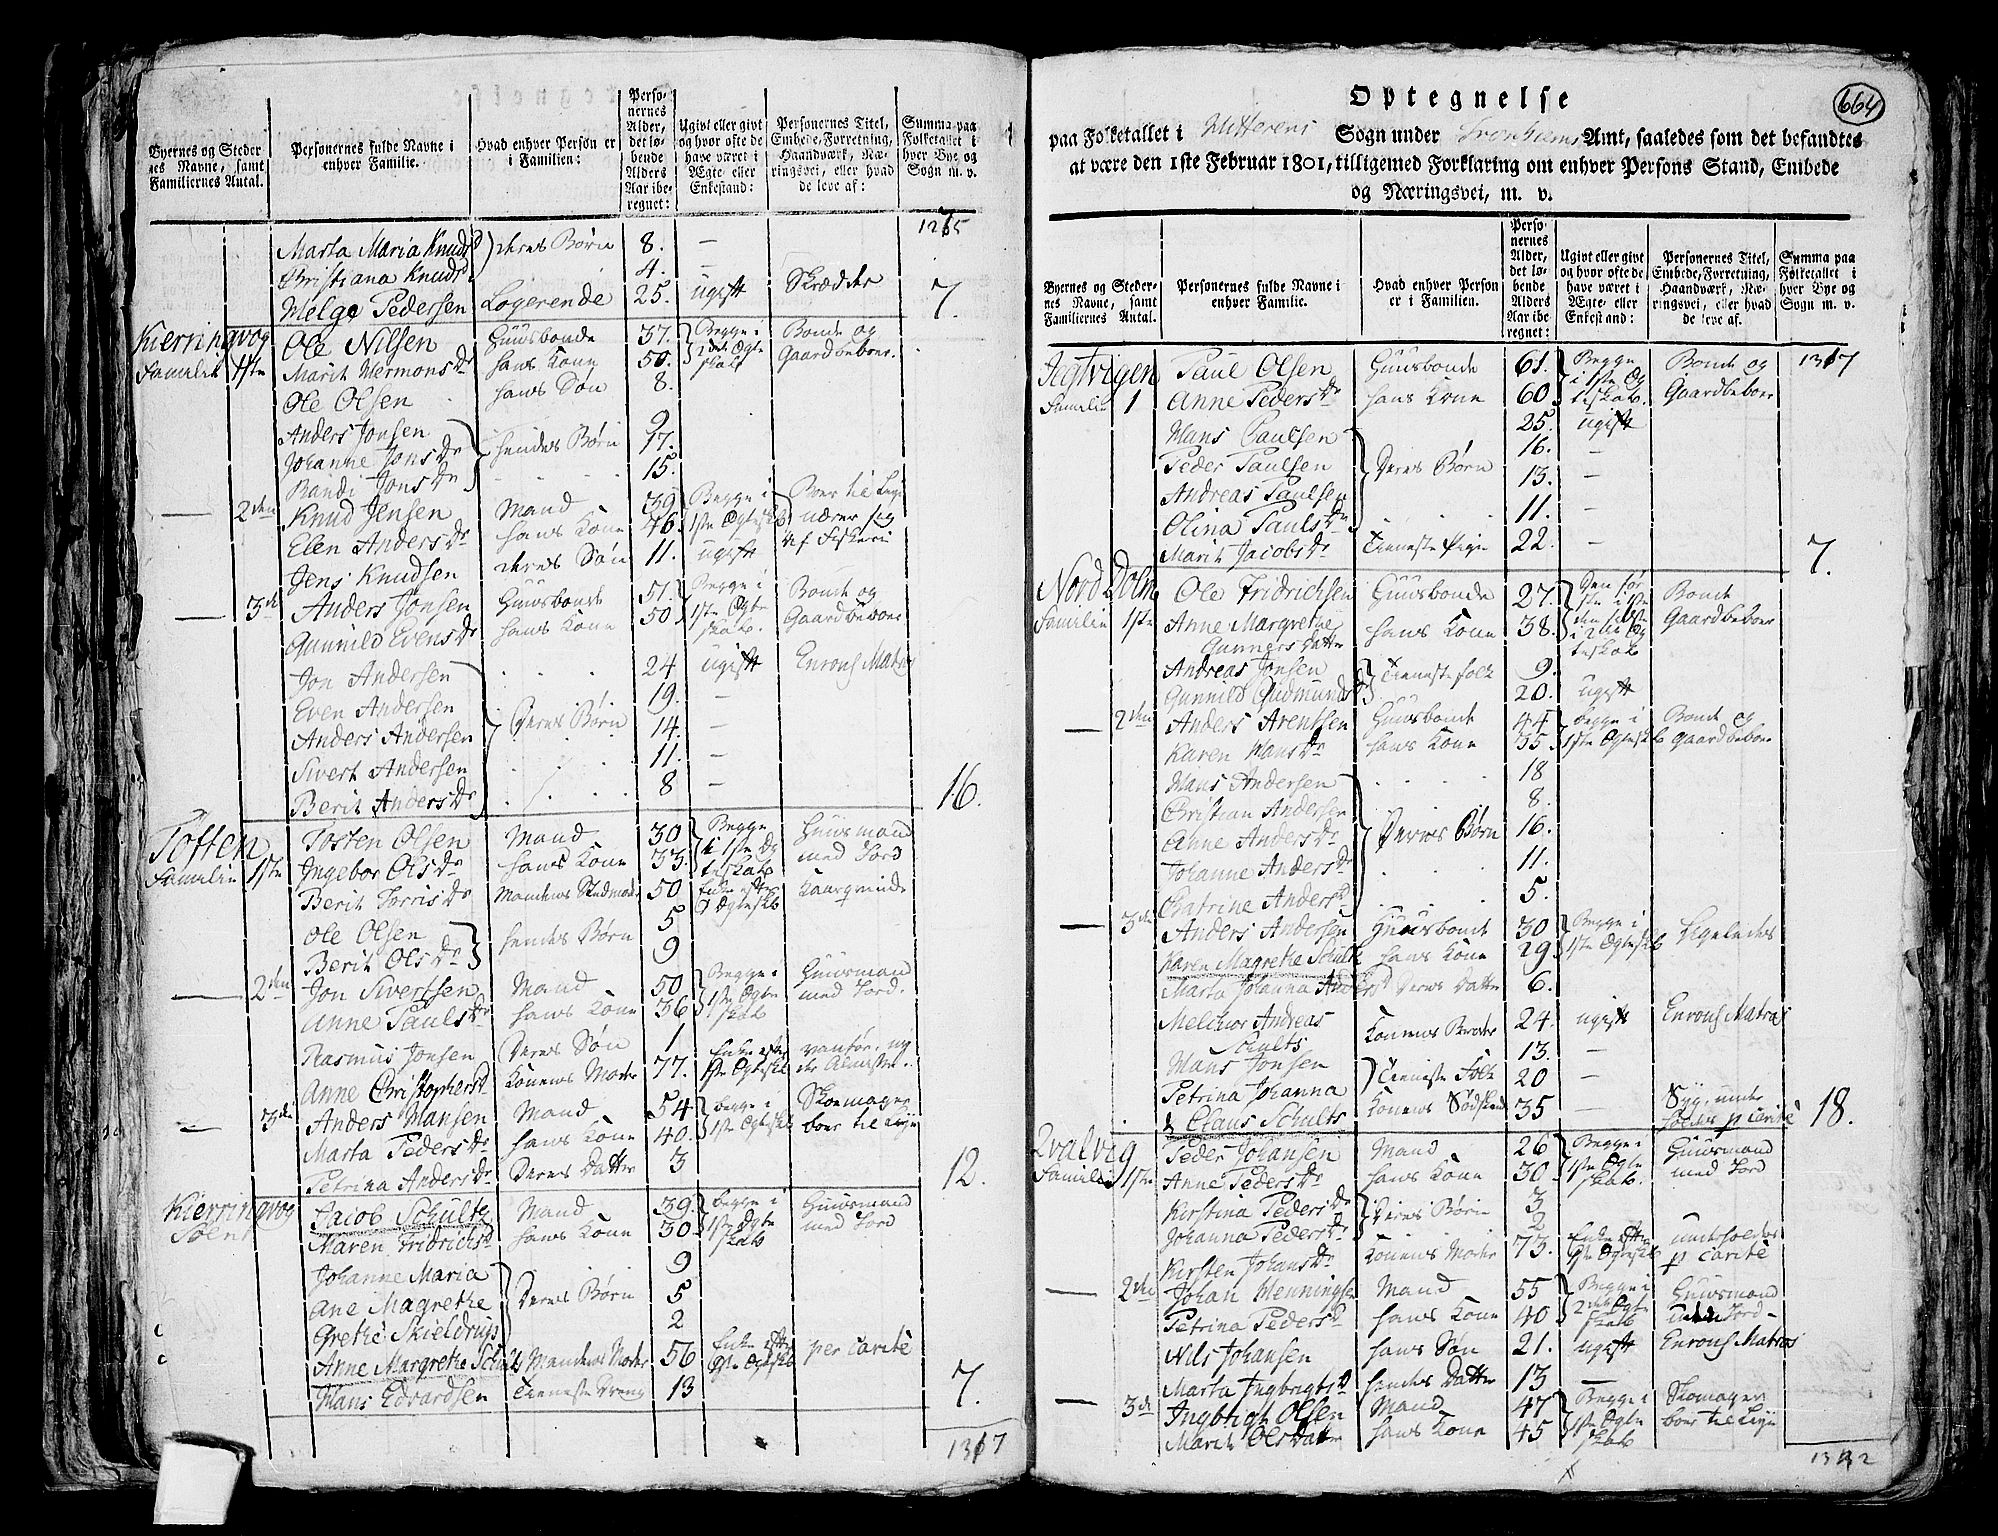 Byernes og Steder-
nes Navne, samt
Familiernes Antal.
Personernes fulde Navne i
enhver Familie.
Hvad enhver Person er
i Familien:
Perso-
nernes
Alder,
det lø-
bende
Alders
Aar ibe-
regnet:
Ugivt eller givt
og hvor ofte de
have været i
Ægte- eller
Enkestand:
Personernes Titel,
Embede, Forretning,
Haandværk, Næ-
ringsvei, eller hvad
de leve af:
Summa paa
Folketallet i
hver Bye og
Sogn m. v.
Marta Maria Knudsd deres Børn 8. —
Christiana Knudsd 4. —
Helge Pedersen Logerende 25. ugift Skrædder 7.
Kierringvog Ole Nilsen Huusbonde 37. Begge i Bonde og
Familie 1ste Marit Hermonsdr hans Kone 50. 2det Ægte Gaardbeboer
skab
Ole Olsen hans Søn 8.
Anders Jonsen 9
Johanne Jonsdr hendes Børn 17.
Randi Jonsdr 15.
— 2den Knud Jensen Mand 39 Begge i Boer til Leje
Elen Andersdr hans Kone 46. 1ste Ægteskb nærer sig
Jens Knudsen deres Søn 11. ugift af Fiskerie
— 3die Anders Jonsen Huusbonde 51. Begge i Bonde og
Gunnild Evensdr hans Kone 50 1ste Ægte Gaardbeboer
skab.
Jon Andersen 24 ugift Enroul Matros
Even Andersen 19. —
Anders Andersen Deres Børn 14. —
Sivert Andersen 11. —
Berit Andersdr 8 — 16.
Toften Tosten Olsen Mand 30 Begge Huusmand
Familie 1ste Ingebor Olsdr hans Kone 33. i 1ste Æg med Jord
teskab
Berit Torrisdr Mandens Stedmoder 50 Enke efter Kaargvinde
Ole Olsen 5
Berit Olsdr hendes Børn 9
— 2den Jon Sivertsen Mand 50 Begge i Huusmand
Anne Paulsdr hans Kone 36 1ste Ægte med Jord.
skab
Rasmus Jonsen Deres Søn 1
Anne Christophersd Konens Moder 77. Enke efter vanfør, ny
1ste Ægteskb der Almisse.
— 3die Anders Hansen Mand 54 begge i Skoemager
Marta Pedersdr hans Kone 40. 1ste Ægteskb boer til Leje
Petrina Andersdr Deres Datter 3 12.
Kierringvog Jacob Schultz Mand 39. begge i Huusmand
Maren Fridrichsd hans Kone 30. 1ste Ægte med Jord
skab
Johanne Maria 9
Ane Magrethe Deres Børn 5
Grethe Skieldrup 2
Anne Margrethe Schults Mandens Moder 56 Enke efter per carité
Hans Edvardsen Tieneste Dreng 13 7.
1317
664
Optegnelse
paa Folketallet i Hitterens Sogn under Tronhiems Amt, saaledes som det befandtes
at være den 1ste Februar 1801, tilligemed Forklaring om enhver Persons Stand, Embede
og Næringsvei, m. v.
Byernes og Steder-
nes Navne, samt
Familiernes Antal.
Personernes fulde Navne i
enhver Familie.
Hvad enhver Person
er i Familien.
Perso-
nernes
Alder,
det lø-
bende
Alders
Aar ibe-
regnet:
Ugivt eller givt
og hvor ofte de
have været i
Ægte- eller
Enkestand:
Personernes Titel,
Embede, Forretning,
Haandværk, Næ-
ringsvei, eller hvad
de leve af.
Summa paa
Folketallet i
hver Bye og
Sogn m. v.
Jegtvigen Paul Olsen Huusbonde 61. Begge Bonde og 1317
Familie 1 Anne Pedersdr hans Kone 60 i 1ste Æg Gaardbeboer
teskab.
Hans Paulsen 25. ugift
Peder Paulsen 16. —
Andreas Paulsen Deres Børn 13. —
Olina Paulsdr 11. —
Marit Jacobsdr Tieneste Pige 22. — 7.
Nord Dolm Ole Fridrichsen Huusbonde 27. Den før Bonde
Familie 1ste Anne Margrethe hans Kone 38. Gaardbeboer
Gunners datter
Andreas Jonsen Tieneste folk 9.
Gunnild Gudmundsd 20. ugift
— 2den Anders Arentsen Huusbonde 44 begge i Bonde og
Karen Hansdr hans Kone 35 1ste Ægteskb Gaardbeboer
Hans Andersen 18
Christian Andersen 8.
Anne Andersdr Deres Børn 16.
Johanne Andersdr 11.
Catrine Andersd 5.
— 3die Anders Andersen Huusbonde 30 Begge i Ligeledes
Karen Magrethe Schultz hans Kone 29 1ste Ægteskb
Marta Johanna Andersd Deres Datter 6.
Melchior Andreas Konens Broder 24. ugift Enroul Matros
Schults
Hans Jonsen 13. —
Petrina Johanna Tieneste Folk 20 —
Claus Schults Konens Sødskend 35 — Syg, under
holdes p carité 18.
Qvalvig Peder Johansen Mand 26 Begge i Huusmand
Familie 1ste Anne Pedersdr hans Kone 30 1ste Ægte med Jord
skab.
Kirstina Pedersdr Deres Børn 3
Johanna Pedersdr 2
Kirsten Johansdr Konens Moder 73. Enke efter underholdes
1ste Ægteskb p carité
— 2den Johan Henningsen Mand 55 Begge i Huusmand
Petrina Pedersd hans Kone 40 2det Ægte Jord
skab
Nils Johansen hans Søn 21. ugift Enroul Matros
Marta Ingbrigtsd hendes Datter 13 —
— 3die Ingbrigt Olsen Mand 47 Begge i Skomager
Marit Olsdatter hans Kone 45 1ste Ægte boer til Leje
skab